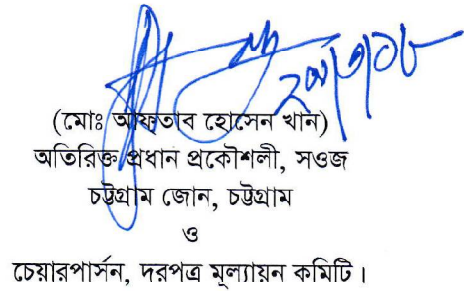 (মোঃ আফতাব হোসেন খান)
অতিরিক্ত প্রধান প্রকৌশলী, সওজ
চট্টগ্রাম জোন, চট্টগ্রাম
ও
চেয়ারপার্সন, দরপত্র মূল্যায়ন কমিটি।